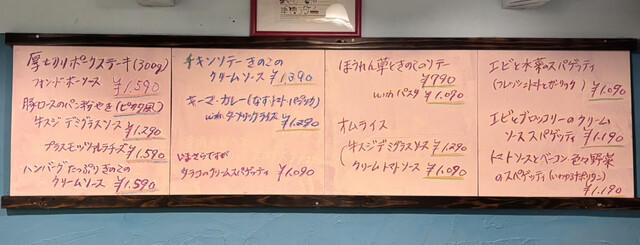 厚切りポークステーキ(300g)
フォンドボーソース ¥1.590
豚ロースのパン粉やき(ピカタ風)
牛スジデミグラスソース ¥1.290
プラスモッツァレラチーズ ¥1.590
ハンバーグたっぷりきのこの
クリームソース ¥1.590
チキンソテーきのこの
クリームソース ¥1.390
キーマ・カレー(なす・トマト・パプリカ)
with ターブリックライス ¥1.290
いまさらですが
タラコのクリームスパゲッティ ¥1.090
ほうれん草ときのこのソテー
¥790
with パスタ ¥1.090
オムライス
(牛スジデミグラスソース ¥1.290
クリームトマトソース ¥1.090
エビと水菜のスパゲッティ
(フレッシュトマトとガーリック) ¥1.090
エビとブロッコリーのクリーム
ソーススパゲッティ ¥1.190
トマトソースとベーコン・色々野菜
のスパゲッティ(いわゆるナポリタン)
¥1.190